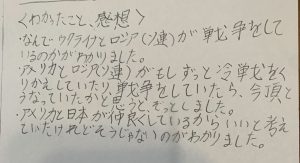 <わかったこと、感想>
・なんでウクライナとロシア(ソ連)が戦争をして
いるのかがわかりました。
・アメリカとロシア(ソ連)がもしずっと冷戦をく
りかえしていたり、戦争をしていたら、今頃ど
うなっていたかと思うと、ぞっとしました。
・アメリカと日本が仲良くしているからいいと考え
ていたけれどそうじゃないのがわかりました。